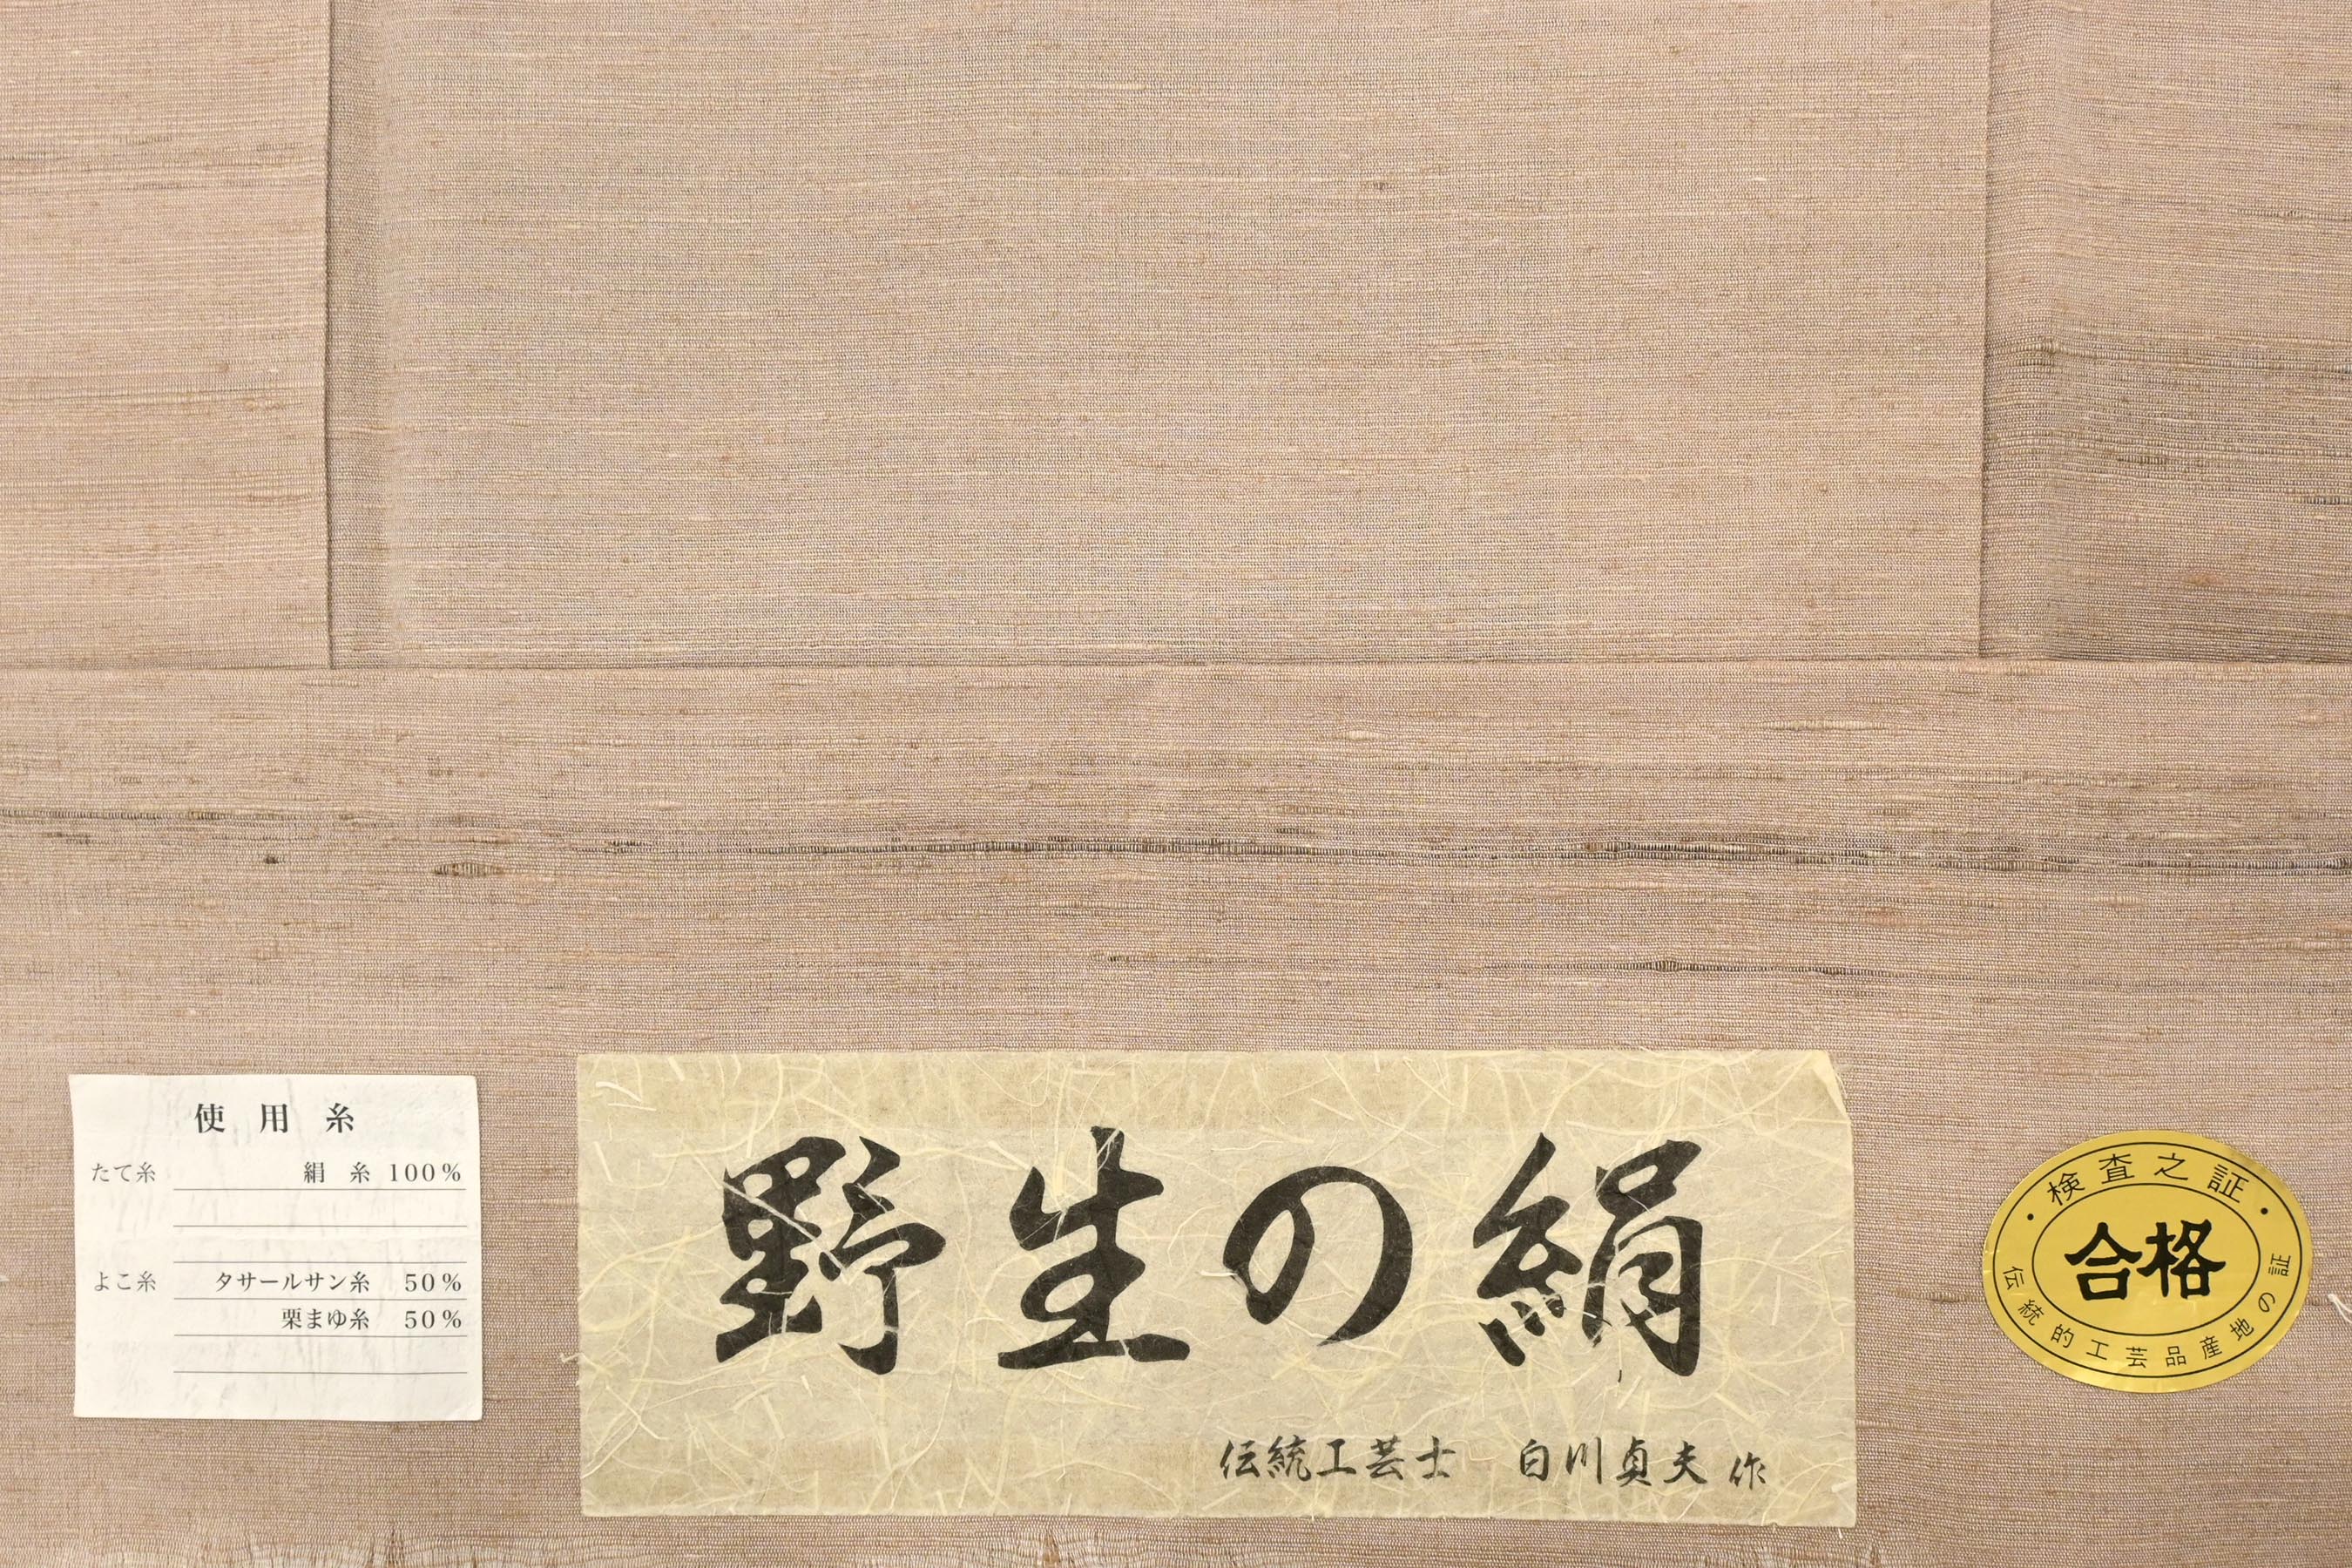 使用糸
たて糸 絹糸 100%
よこ糸 タサールサン糸 50%
栗まゆ糸 50%
野生の絹
伝統工芸士 白川貞夫 作
・検査之証・
合格
伝統的工芸品産地の証